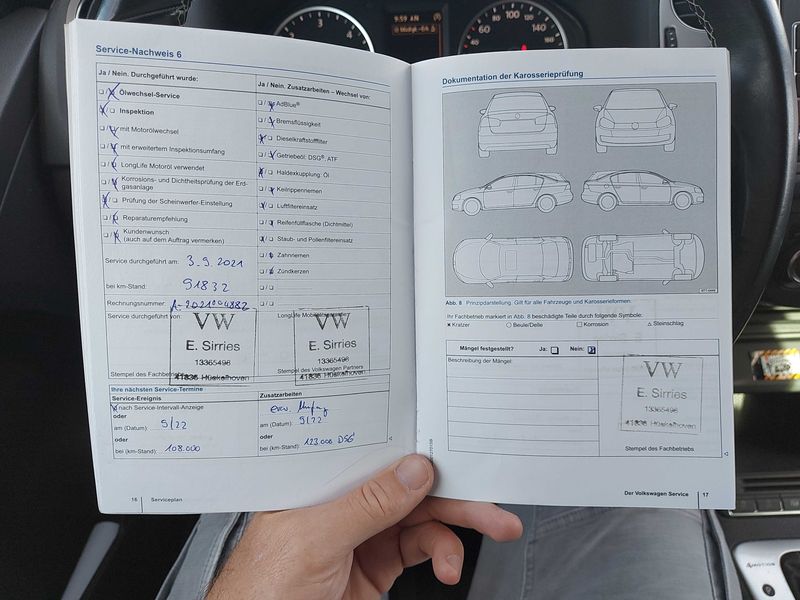 9:59 AM
3
4
40
60
80
100
120
140
160
Service-Nachweis 6
Ja / Nein. Durchgeführt wurde:
Ölwechsel-Service
Inspektion
mit Motorölwechsel
mit erweitertem Inspektionsumfang
LongLife Motoröl verwendet
Korrosions- und Dichtheitsprüfung der Erd-
gasanlage
Prüfung der Scheinwerfer-Einstellung
Reparaturempfehlung
Kundenwunsch
(auch auf dem Auftrag vermerken)
Service durchgeführt am: 3.9.2021
bei km-Stand: 91832
Rechnungsnummer: A-2021004882
Service durchgeführt von:
VW
E. Sirries
13365496
41836 Hückelhoven
Stempel des Fachbetriebs
Ja / Nein. Zusatzarbeiten – Wechsel von:
AdBlue®
Bremsflüssigkeit
Dieselkraftstofffilter
Getriebeöl: DSG®, ATF
Haldexkupplung: Öl
Keilrippenriemen
Luftfiltereinsatz
Reifenfüllflasche (Dichtmittel)
Staub- und Pollenfiltereinsatz
Zahnriemen
Zündkerzen
LongLife Mobilitätsgarantie
VW
E. Sirries
13365496
41836 Hückelhoven
Stempel des Volkswagen Partners
Ihre nächsten Service-Termine
Service-Ereignis
nach Service-Intervall-Anzeige
oder
am (Datum): 9/22
oder
bei (km-Stand): 108.000
Zusatzarbeiten
erw. Umfang
am (Datum): 9/22
oder
bei (km-Stand): 123.000 DSG
16 Serviceplan
Dokumentation der Karosserieprüfung
Abb. 8 Prinzipdarstellung. Gilt für alle Fahrzeuge und Karosserieformen.
Ihr Fachbetrieb markiert in Abb. 8 beschädigte Teile durch folgende Symbole:
x Kratzer
○ Beule/Delle
□ Korrosion
△ Steinschlag
Mängel festgestellt? Ja: Nein:
Beschreibung der Mängel:
VW
E. Sirries
13365496
41836 Hückelhoven
Stempel des Fachbetriebs
Der Volkswagen Service 17
4MOTION